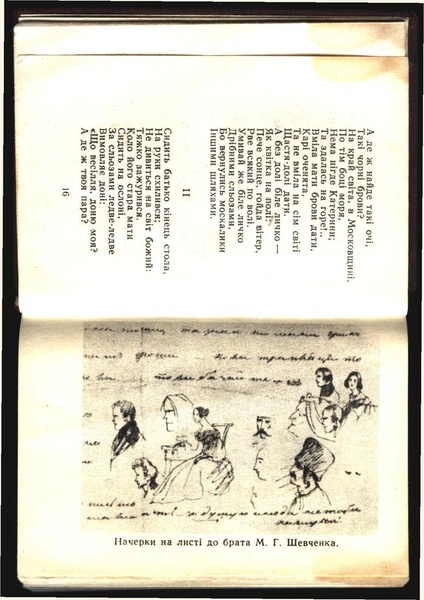 А де ж найде такі очі,
Такі чорні брови?
На край світа, в Московщині,
По тім боці моря,
Нема нігде Катерини;
Та здалася на горе!..
Вміла мати брови дати,
Карі оченята,
Та не вміла на сім світі
Щастя-долі дати.
А без долі біле личко —
Як квітка на полі:
Пече сонце, гойда вітер,
Рве всякий по волі.
Умивай же біле личко
Дрібними сльозами,
Бо вернулись москалики
Іншими шляхами.
II
Сидить батько кінець стола,
На руки схилився;
Не дивиться на світ божий:
Тяжко зажурився.
Коло його стара мати
Сидить на ослоні,
За сльозами ледве-ледве
Вимовляє доні:
«Що весілля, доню моя?
А де ж твоя пара?
16
Начерки на листі до брата М. Г. Шевченка.